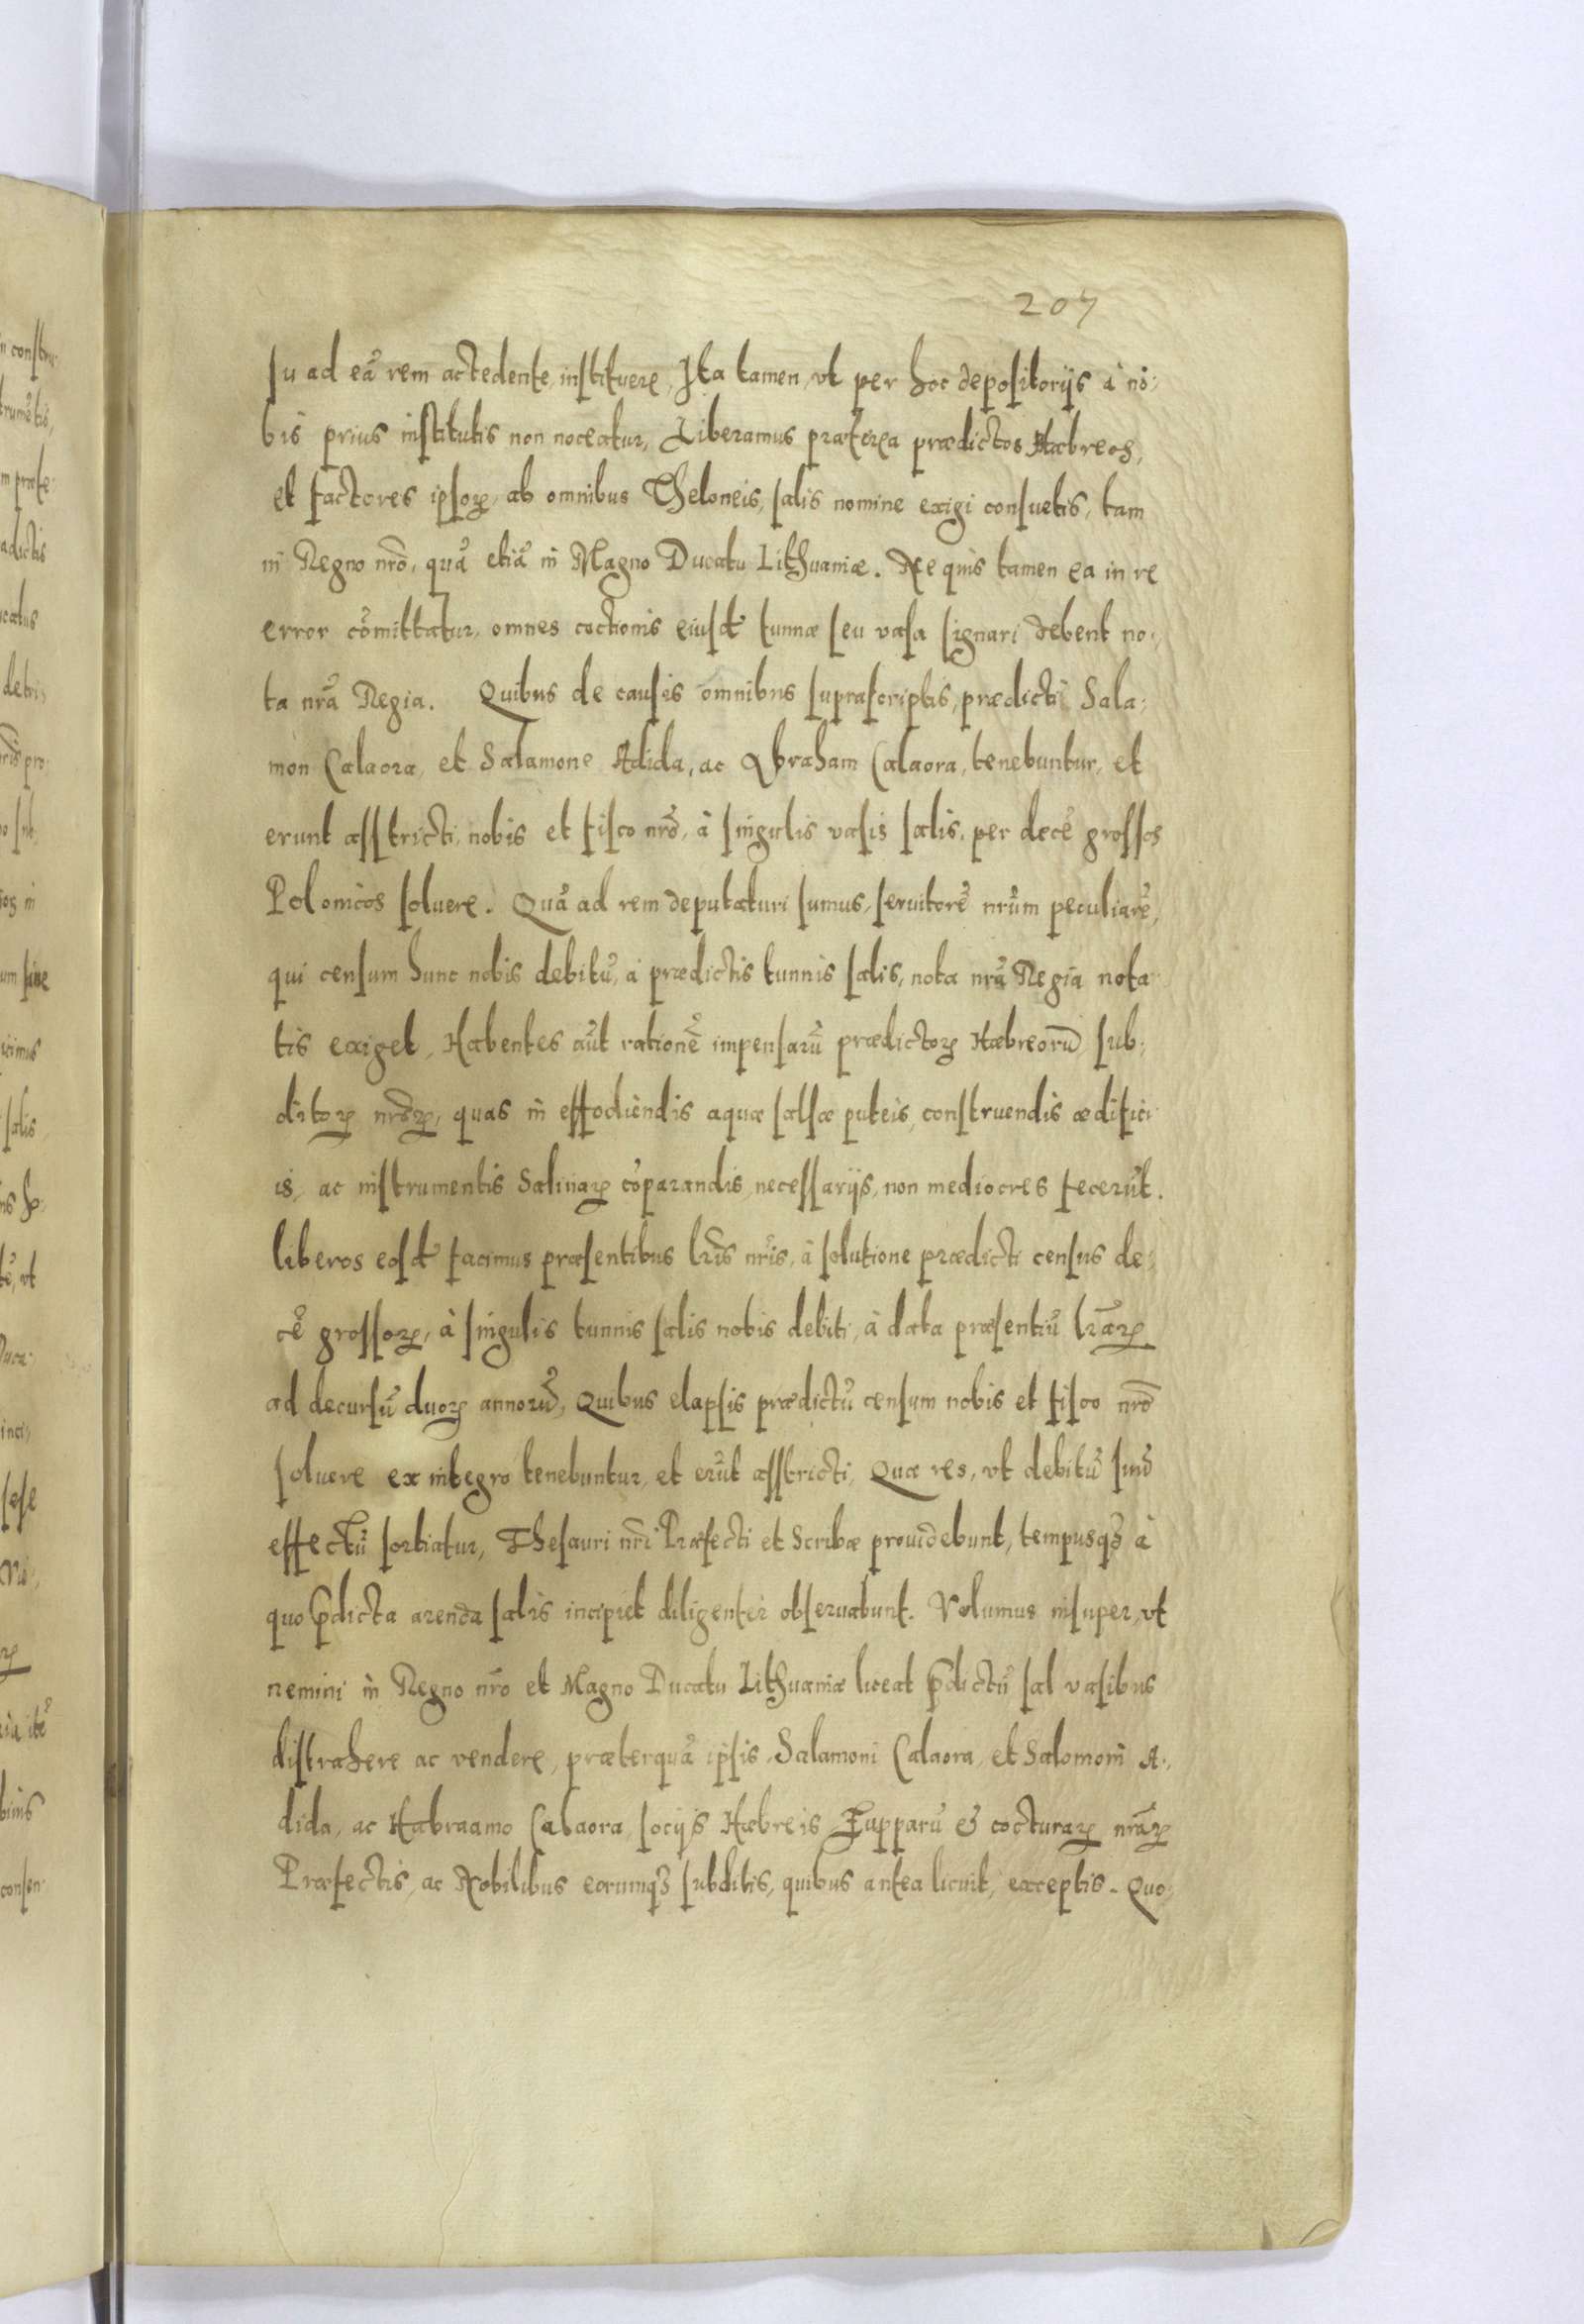 207
su ad eã rem actedente, instituere, Ita tamen, vt per hoc depositorijs à no:
bis prius institutis non noceatur, Liberamus præterea prædictos Hæbreos,
et factores ipsoꝝ, ab omnibus Theloneis, salis nomine exigi consuetis, tam
in Regno nrõ, quã etiã in Magno Ducatu Lithuaniæ. Ne quis tamen ea in re
error cõmittatur, omnes coctionis eiusd tunnæ seu vasa signari debent no:
ta nrã Regia. Quibus de causis omnibus suprascriptis, prædicti Sala:
mon Calaora, et Salamone Adida, ac Abraham Calaora, tenebuntur, et
erunt asstricti, nobis et fisco nrõ, à singulis vasis salis, per decẽ grossos
Polonicos soluere. Quã ad rem deputaturi sumus, seruitorẽ nrũm peculiarẽ,
qui censum hunc nobis debitũ, à prædictis tunnis salis, nota nrã Regia nota
tis exiget, Habentes aũt rationẽ impensarũ prædictoꝝ Hæbreorũ sub:
ditoꝝ nrõꝝ, quas in effodiendis aquæ salsæ puteis, construendis ædifici
is, ac instrumentis Salinaꝝ cõparandis necessarijs, non mediocres fecerũt.
liberos eosd facimus præsentibus lrĩs nrĩs, à solutione prædicti census de:
cẽ grossoꝝ, à singulis tunnis salis nobis debiti, à data præsentiũ lrãꝝ
ad decursũ duoꝝ annorũ, Quibus elapsis prædictũ censum nobis et fisco nrõ
soluere ex integro tenebuntur, et erũt asstricti, Quæ res, vt debitũ suũ
effectũ sortiatur, Thesauri nrĩ Præfecti et Scribæ prouidebunt, tempusqꝫ à
quo p̃dicta arenda salis incipiet diligenter obseruabunt. Volumus insuper, vt
nemini in Regno nrõ et Magno Ducatu Lithuaniæ liceat p̃dictũ sal vasibus
distrahere ac vendere, præterquã ipsis Salamoni Calaora, et Salomoni A:
dida, ac Habraamo Calaora, socijs Hæbreis, Zupparũ & cocturaꝝ nrãꝝ
Præfectis, ac Nobilibus eorumqꝫ subditis, quibus antea licuit, exceptis. Quo: